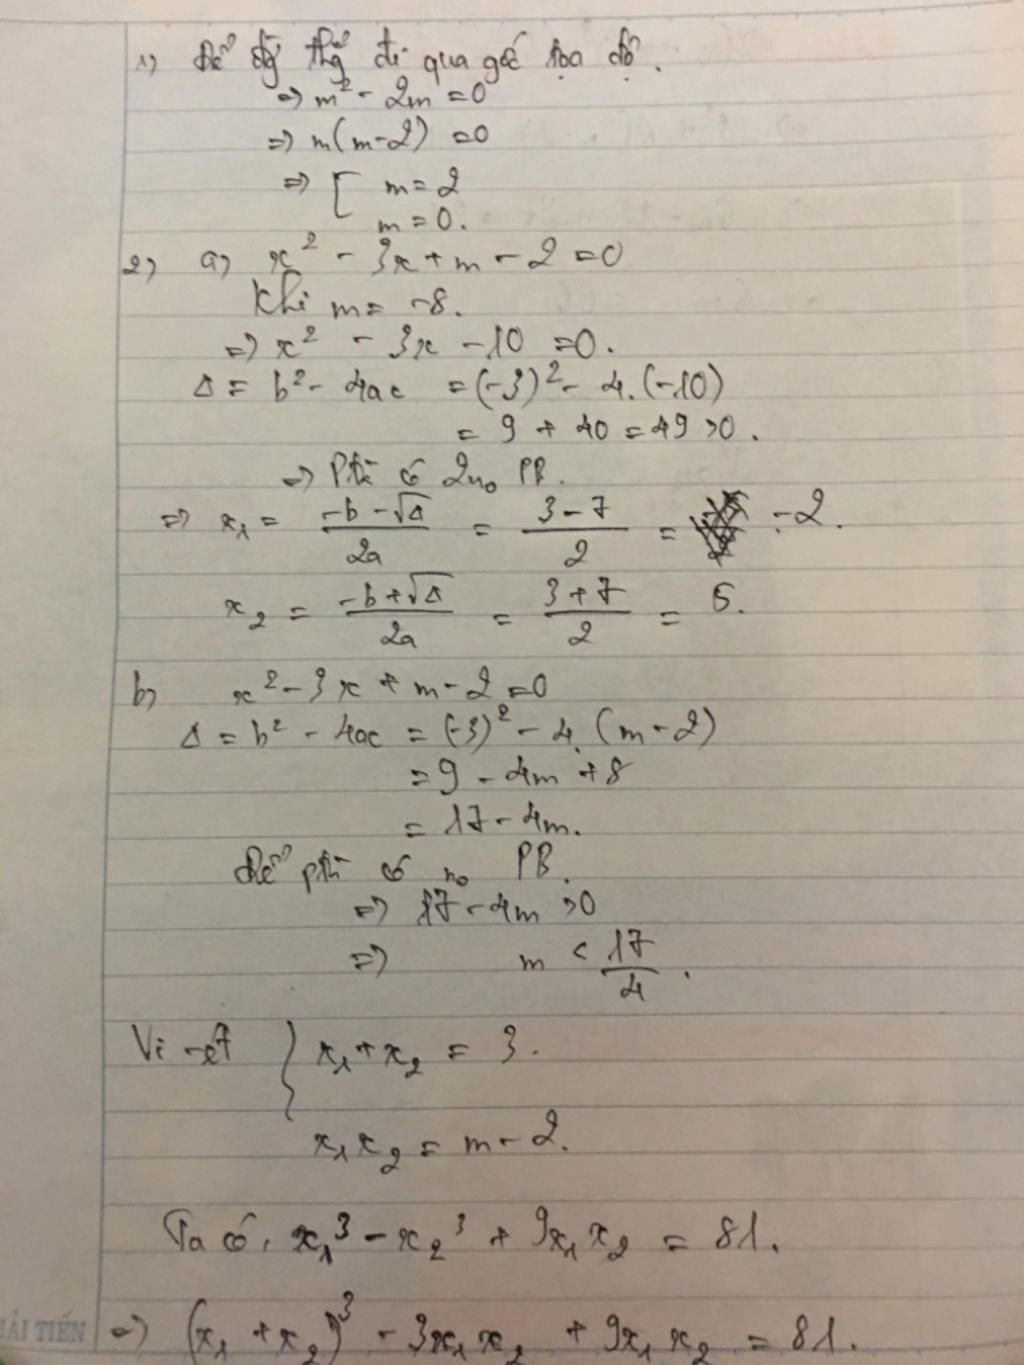 1) Để đg thg đi qua gốc tọa độ.
=> m² - 2m = 0
=> m(m-2) = 0
=> [ m = 2
m = 0.
2) a) x² - 3x + m - 2 = 0
Khi m = -8.
=> x² - 3x - 10 = 0.
Δ = b² - 4ac = (-3)² - 4.(-10)
= 9 + 40 = 49 > 0.
=> Ptr có 2no PB.
=> x₁ = (-b - √Δ)/2a = (3 - 7)/2 = -2.
x₂ = (-b + √Δ)/2a = (3 + 7)/2 = 5.
b) x² - 3x + m - 2 = 0
Δ = b² - 4ac = (-3)² - 4.(m - 2)
= 9 - 4m + 8
= 17 - 4m.
Để ptr có no PB.
=> 17 - 4m > 0
=> m < 17/4.
Vi-ét { x₁ + x₂ = 3.
x₁x₂ = m - 2.
Ta có, x₁³ - x₂³ + 9x₁x₂ = 81.
HẢI TIẾN => (x₁ + x₂)³ - 3x₁x₂ + 9x₁x₂ = 81.